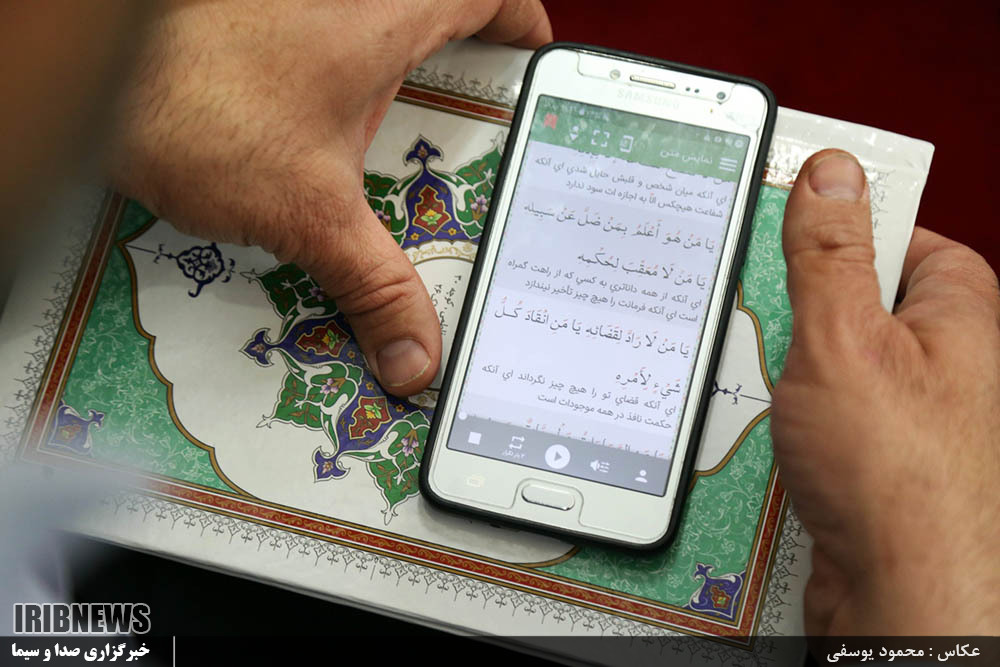 SAMSUNG
نمایش متن
اي آنکه میان شخص و قلبش حایل شدي اي آنکه
شفاعت هیچکس الّا به اجازه ات سود ندارد
یَا مَنْ هُوَ أَعْلَمُ بِمَنْ ضَلَّ عَنْ سَبِیلِهِ
یَا مَنْ لَا مُعَقِّبَ لِحُکْمِهِ
اي آنکه از همه داناتري به کسي که از راهت گمراه
است اي آنکه فرمانت را هیچ چیز تأخیر نیندازد
یَا مَنْ لَا رَادَّ لِقَضَائِهِ یَا مَنِ انْقَادَ کُلُّ
شَيْءٍ لِأَمْرِهِ
اي آنکه قضاي تو را هیچ چیز نگرداند اي آنکه
حکمت نافذ در همه موجودات است
IRIBNEWS
خبرگزاری صدا و سیما
عکاس : محمود یوسفی